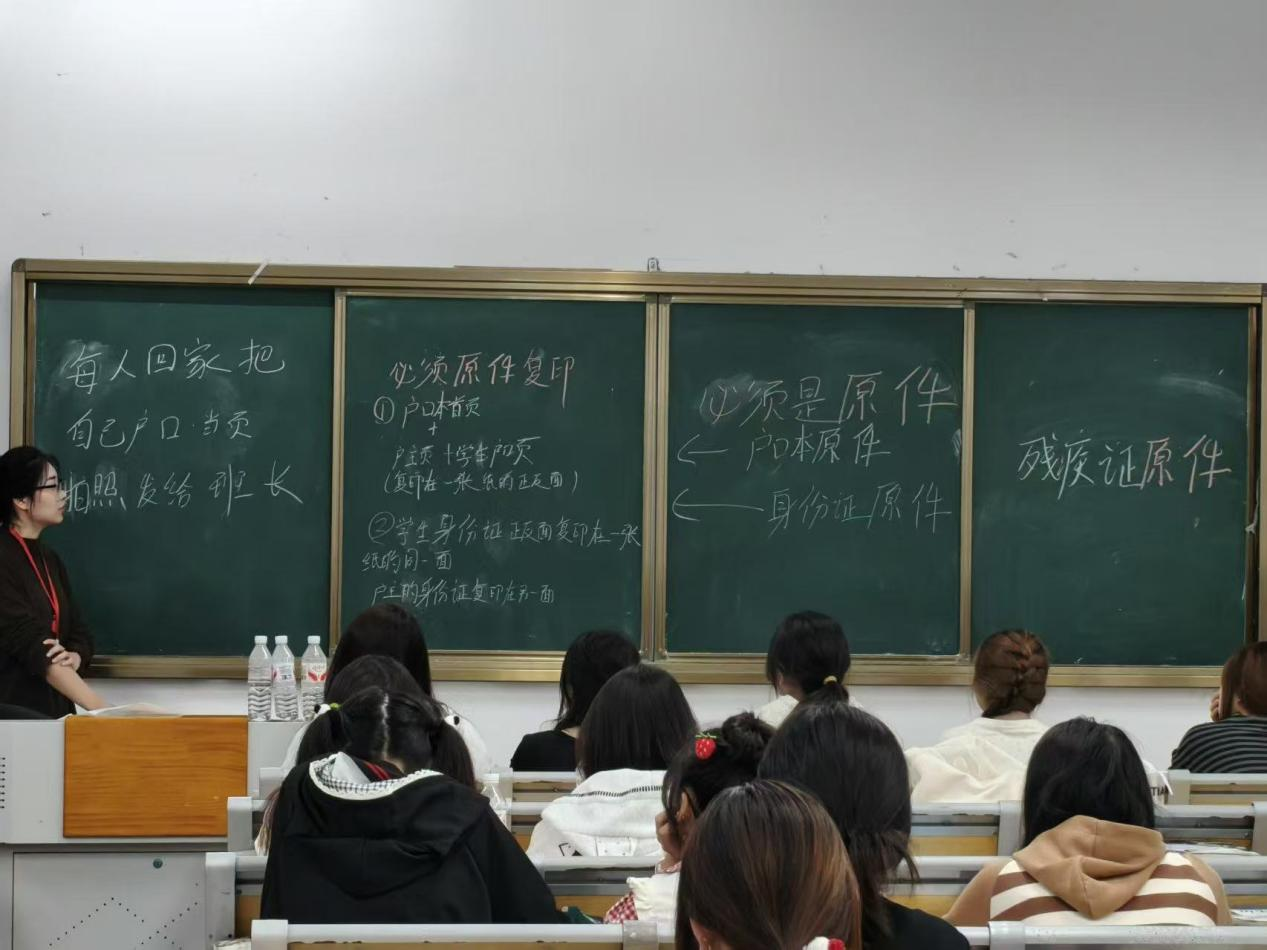 每人回家把
自己户口·当页
拍照发给班长
必须原件复印
①户口本首页
+
户主页+学生户口页
(复印在一张纸的正反面)
②学生身份证正反面复印在一张
纸的同一面
户主的身份证复印在另一面
必须是原件
←户口本原件
←身份证原件
残疾证原件